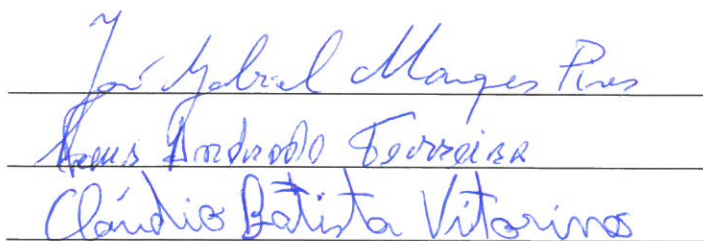 José Gabriel Marques Pires
Andrade Ferreira
Cláudio Batista Vitorino